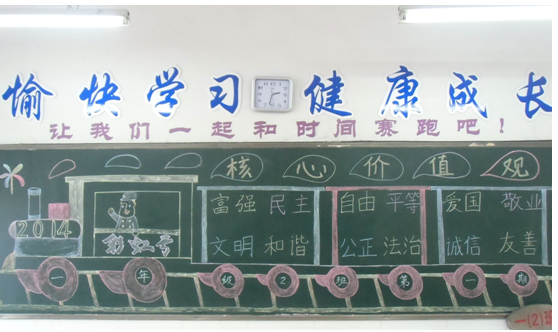 愉快学习 健康成长
让我们一起和时间赛跑吧!
核心价值观
富强 民主 自由 平等 爱国 敬业
2014 彩虹号
文明 和谐 公正 法治 诚信 友善
一年级2班第一期
一(2)班